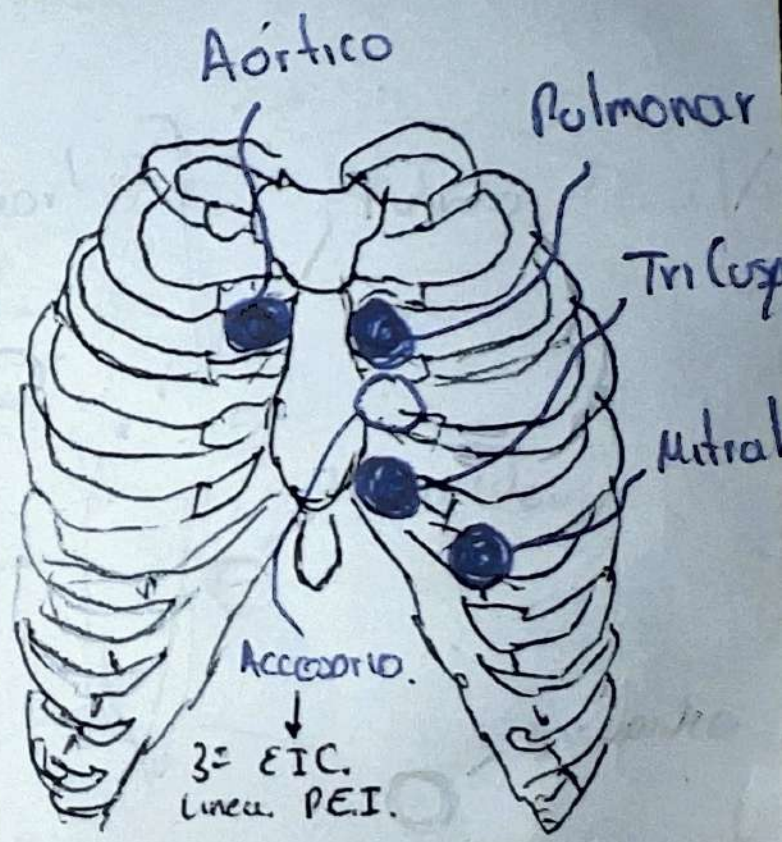 Aórtico
Pulmonar
Tricusp
Mitral
Accesorio.
3º EIC.
Linea P.E.I.